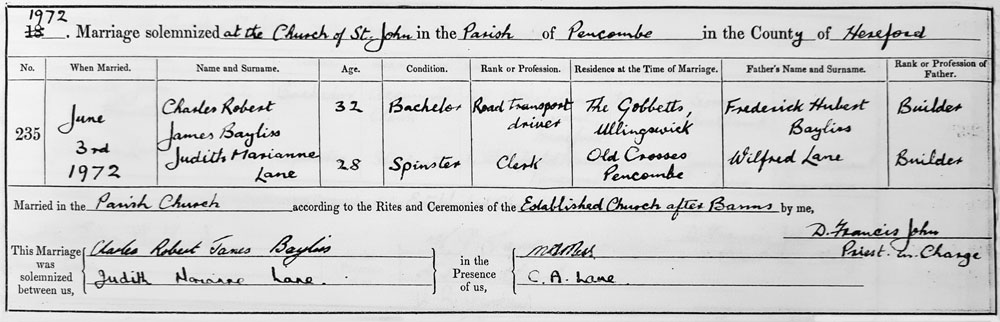 1972
18 . Marriage solemnized at the Church of St. John in the Parish of Pencombe in the County of Hereford
No. When Married. Name and Surname. Age. Condition. Rank or Profession. Residence at the Time of Marriage. Father's Name and Surname. Rank or Profession of Father.
235 June 3rd 1972
Charles Robert James Bayliss 32 Bachelor Road Transport driver The Gobbetts, Ullingswick Frederick Hubert Bayliss Builder
Judith Marianne Lane 28 Spinster Clerk Old Crosses Pencombe Wilfred Lane Builder
Married in the Parish Church according to the Rites and Ceremonies of the Established Church after Banns by me,
D. Francis John
Priest-in-Charge
This Marriage was solemnized between us, Charles Robert James Bayliss
Judith Marianne Lane.
in the Presence of us,
C. A. Lane.